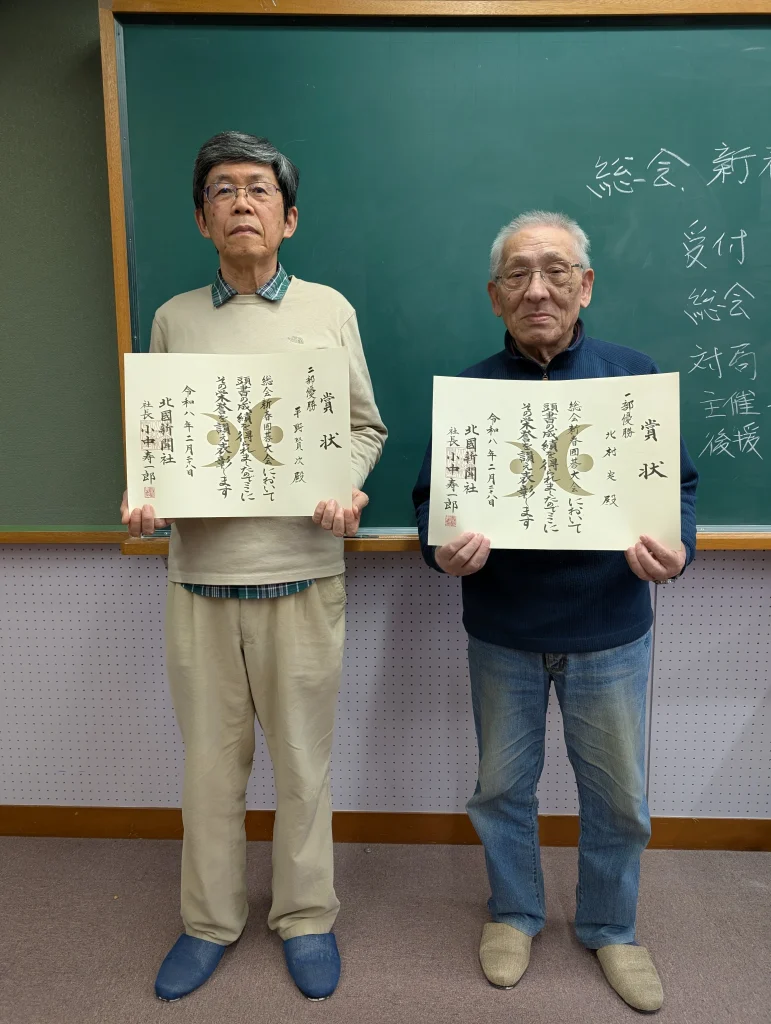 総会、新春
受付
総会
対局
主催
後援
賞状
二部優勝
平野賢次殿
総会新春囲碁大会において
頭書の成績を得られましたのでここに
その栄誉を讃え表彰します
令和八年二月二八日
北國新聞社
社長 小中寿一郎
賞状
一部優勝
北村 殿
総会新春囲碁大会において
頭書の成績を得られましたのでここに
その栄誉を讃え表彰します
令和八年二月二八日
北國新聞社
社長 小中寿一郎